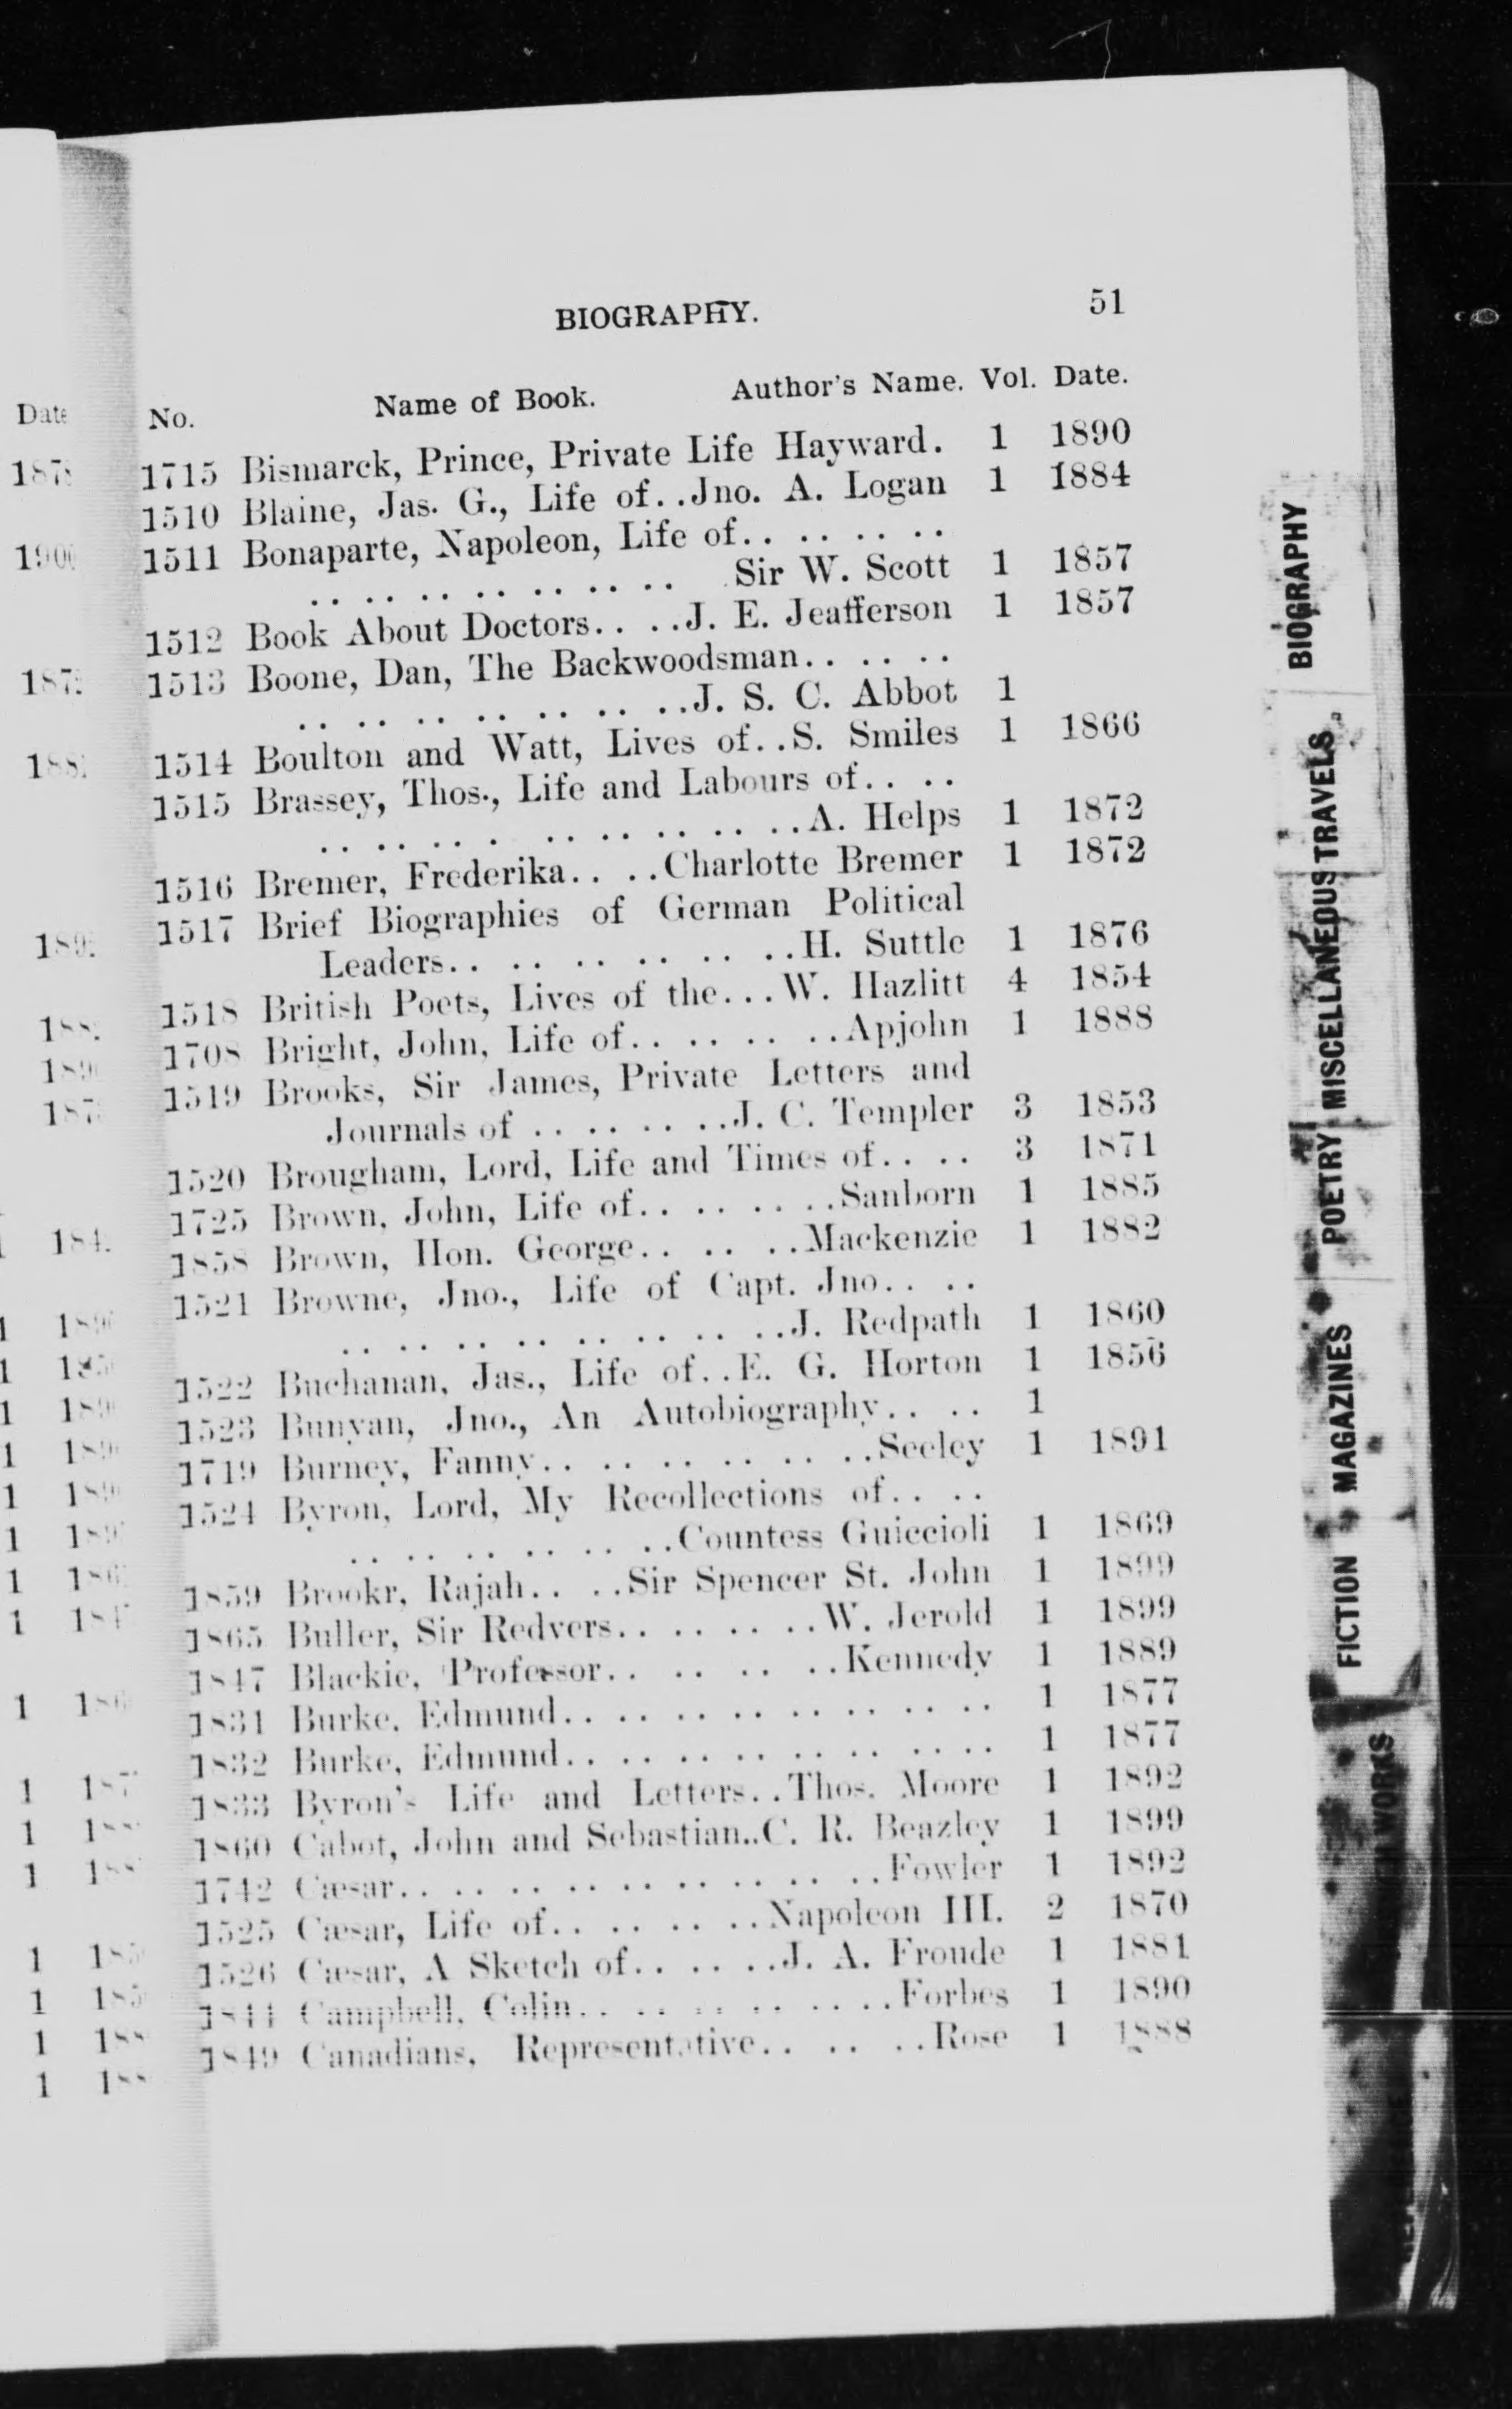 BIOGRAPHY. 51
No. Name of Book. Author's Name. Vol. Date.
1715 Bismarck, Prince, Private Life Hayward. 1 1890
1510 Blaine, Jas. G., Life of. .Jno. A. Logan 1 1884
1511 Bonaparte, Napoleon, Life of. . . . . . . .
. . . . . . . . . . . . . . Sir W. Scott 1 1857
1512 Book About Doctors. . . .J. E. Jeafferson 1 1857
1513 Boone, Dan, The Backwoodsman. . . . . .
. . . . . . . . . . . . . .J. S. C. Abbot 1
1514 Boulton and Watt, Lives of. .S. Smiles 1 1866
1515 Brassey, Thos., Life and Labours of. . . .
. . . . . . . . . . . . . . . . .A. Helps 1 1872
1516 Bremer, Frederika. . . .Charlotte Bremer 1 1872
1517 Brief Biographies of German Political
Leaders. . . . . . . . . . . . .H. Suttle 1 1876
1518 British Poets, Lives of the. . .W. Hazlitt 4 1854
1708 Bright, John, Life of. . . . . . . .Apjohn 1 1888
1519 Brooks, Sir James, Private Letters and
Journals of . . . . . . . .J. C. Templer 3 1853
1520 Brougham, Lord, Life and Times of. . . . 3 1871
1725 Brown, John, Life of. . . . . . . .Sanborn 1 1885
1858 Brown, Hon. George. . . . . .Mackenzie 1 1882
1521 Browne, Jno., Life of Capt. Jno. . . .
. . . . . . . . . . . . . . . .J. Redpath 1 1860
1522 Buchanan, Jas., Life of. .E. G. Horton 1 1856
1523 Bunyan, Jno., An Autobiography. . . . 1
1719 Burney, Fanny. . . . . . . . . . . .Seeley 1 1891
1524 Byron, Lord, My Recollections of. . . .
. . . . . . . . . . . .Countess Guiccioli 1 1869
1859 Brookr, Rajah. . . .Sir Spencer St. John 1 1899
1865 Buller, Sir Redvers. . . . . . . .W. Jerold 1 1899
1847 Blackie, Professor. . . . . . . .Kennedy 1 1889
1831 Burke, Edmund. . . . . . . . . . . . . . . . 1 1877
1832 Burke, Edmund. . . . . . . . . . . . . . . . 1 1877
1833 Byron's Life and Letters. .Thos. Moore 1 1892
1860 Cabot, John and Sebastian..C. R. Beazley 1 1899
1742 Cæsar. . . . . . . . . . . . . . . . . .Fowler 1 1892
1525 Cæsar, Life of. . . . . . . .Napoleon III. 2 1870
1526 Cæsar, A Sketch of. . . . . .J. A. Froude 1 1881
1844 Campbell, Colin. . . . . . . . . . . .Forbes 1 1890
1849 Canadians, Representative. . . . . . .Rose 1 1888
BIOGRAPHY
TRAVELS
MISCELLANEOUS
POETRY
MAGAZINES
FICTION
WORKS